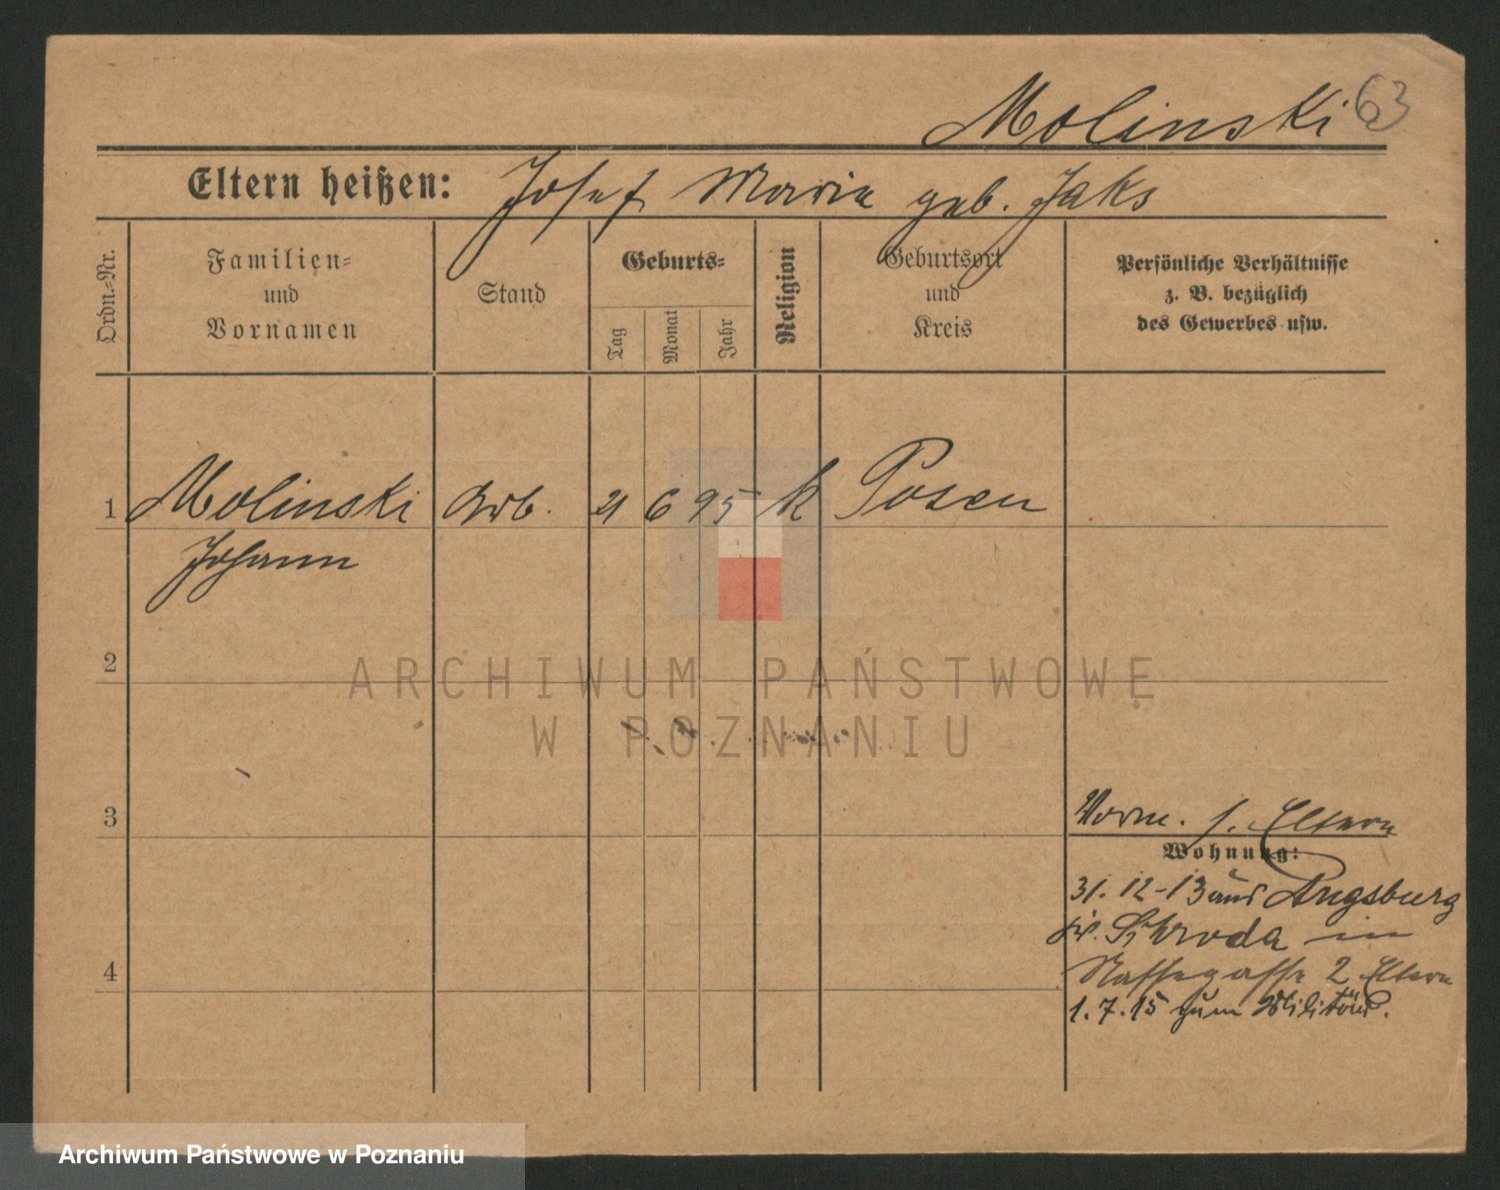 Molinski 63
Eltern heißen: Josef Maria geb. Jaks
Ordn.-Nr.
Familien-
und
Vornamen
Stand
Geburts-
Tag
Monat
Jahr
Religion
Geburtsort
und
Kreis
Persönliche Verhältnisse
z. B. bezüglich
des Gewerbes usw.
1 Molinski Arb. 21 6 95 k Posen
Johann
2
3
Vorm. s. Eltern
Wohnung:
31. 12-13 aus Augsburg
Schroda in
4
Nassegasse 2 Eltern
1. 7. 15 zum Militär.
ARCHIWUM PAŃSTWOWE
W POZNANIU
Archiwum Państwowe w Poznaniu